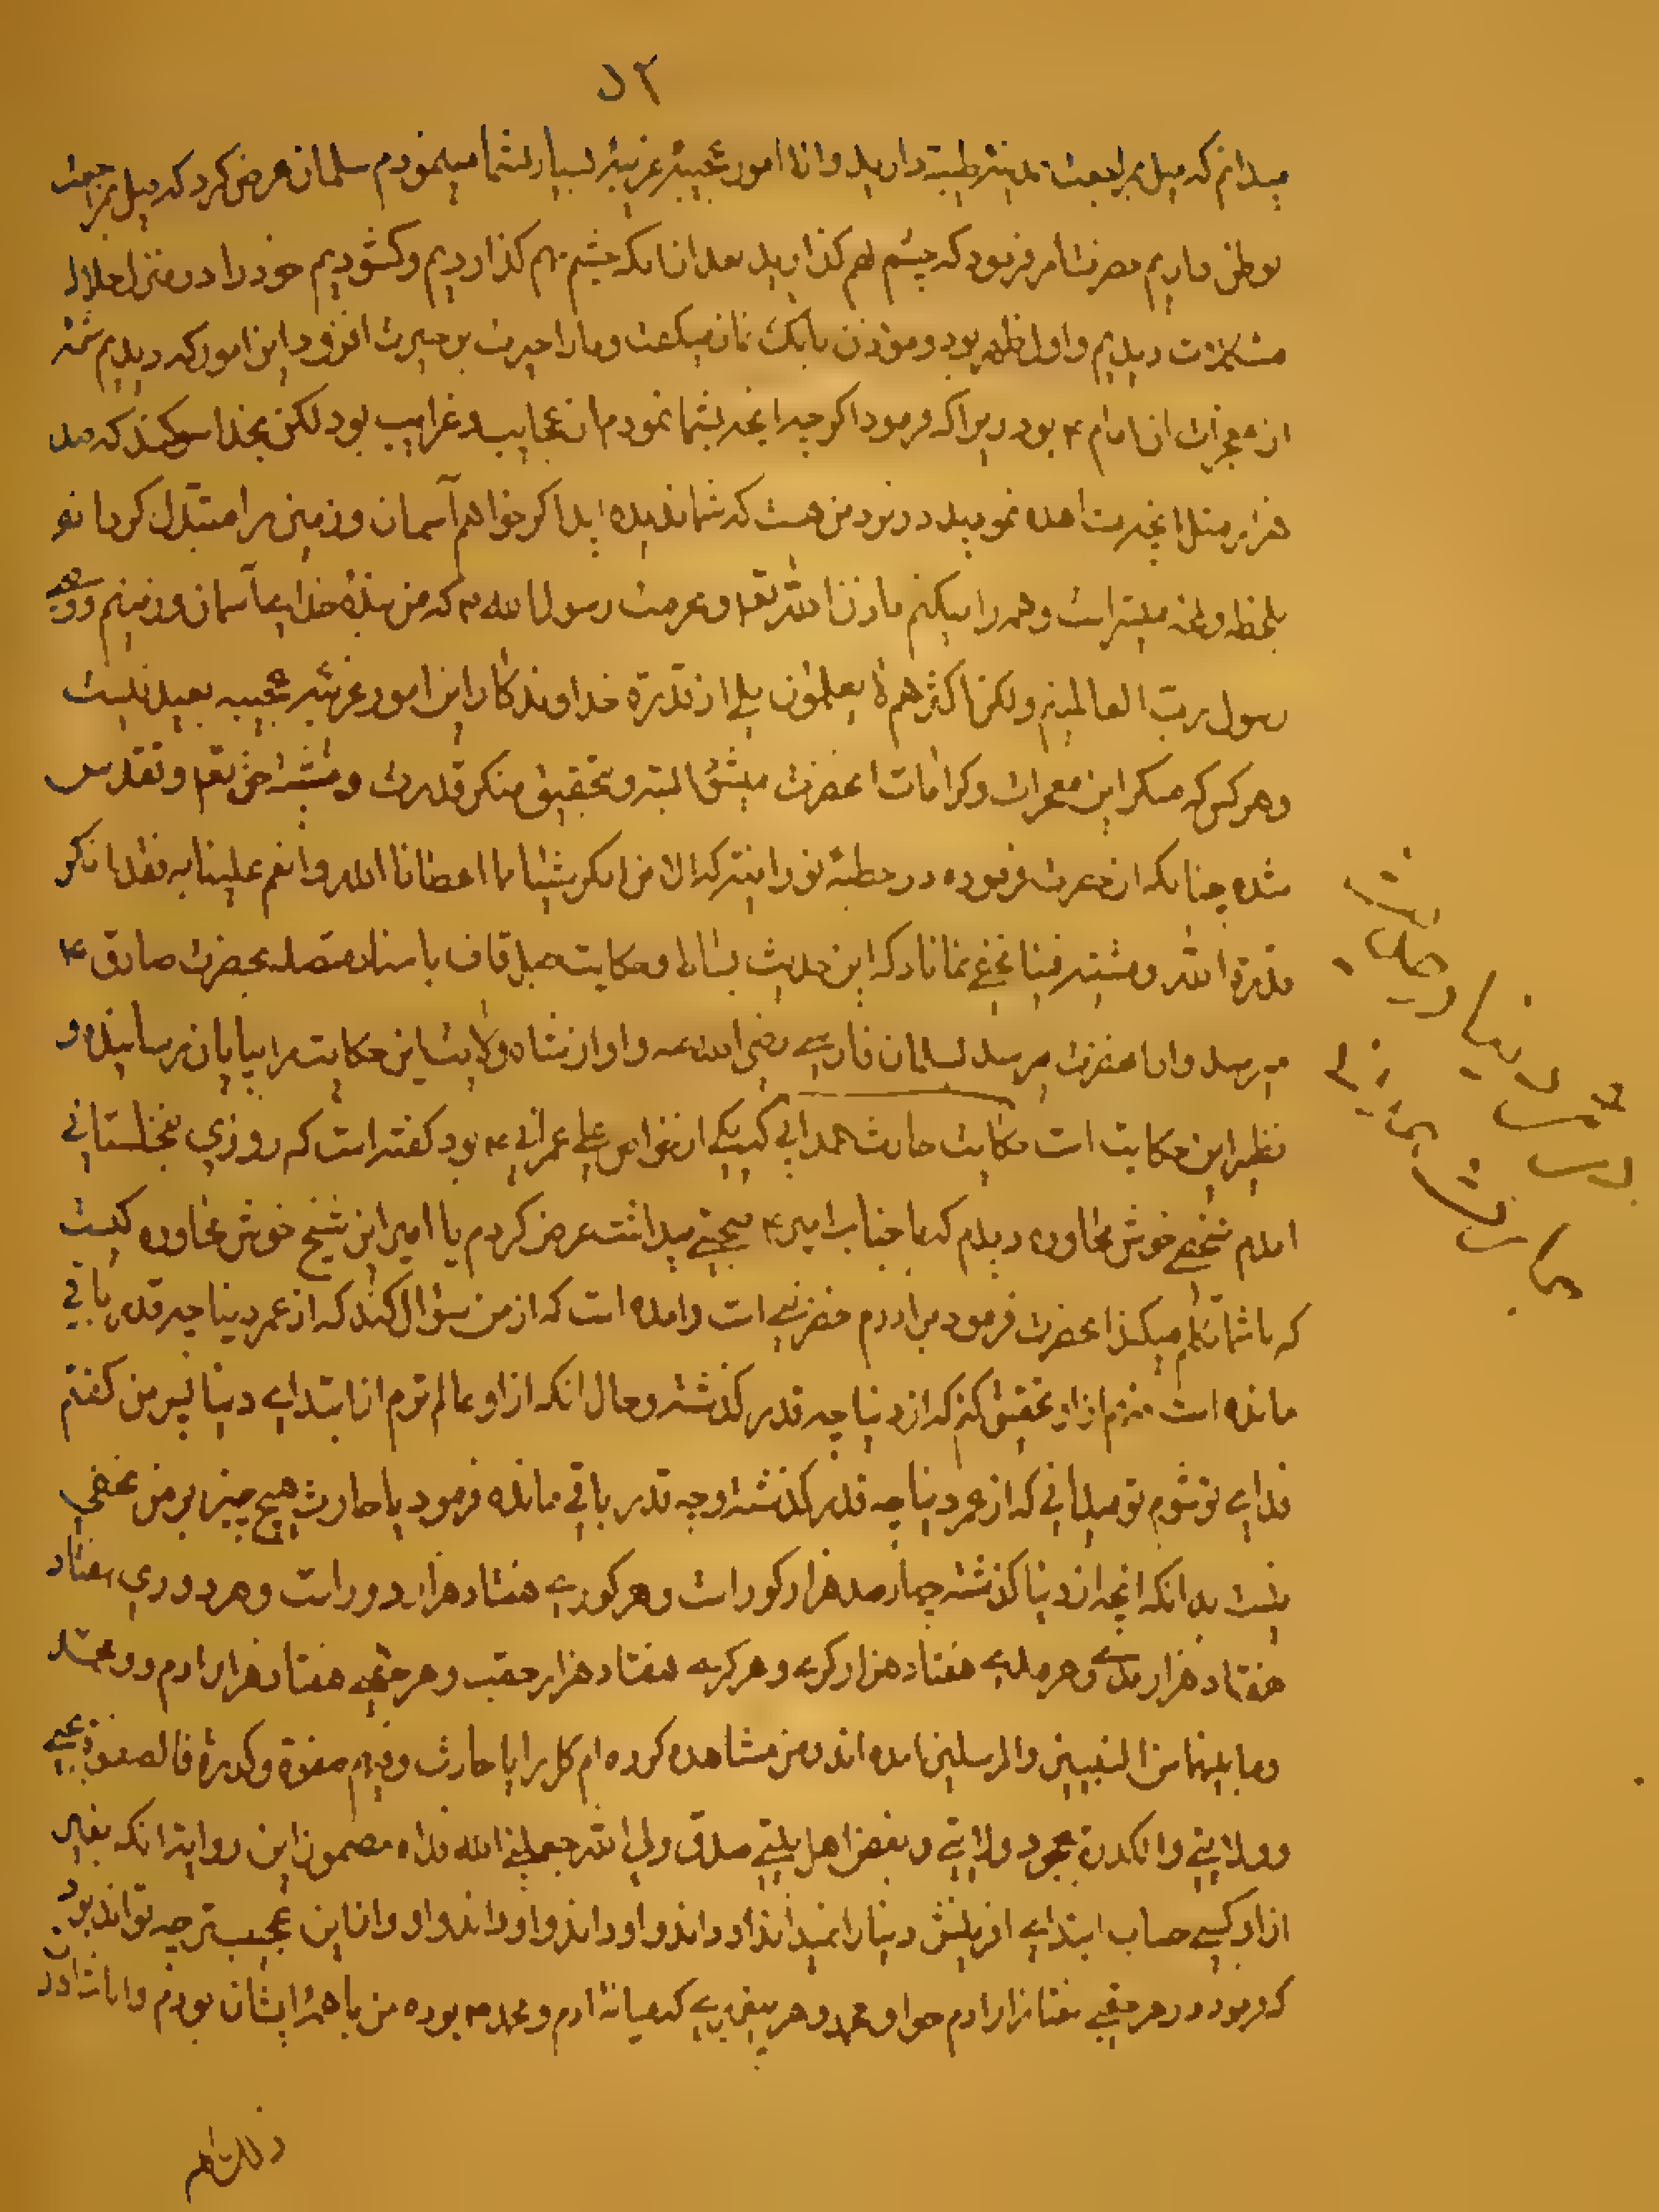 ۵۲
میدانم که میل بمراجعت مدینه طیبه دارید والا امور عجیبه غریبه بسیار بشما مینمودم سلمان عرض کرد که میل بمراجعت
بوطن داریم حضرت امر فرمود که چشم بهم کذارید بعد از انکه چشم بهم کذاردیم و کشودیم خود را در منزل حلال
مشکلات دیدیم و اول ظهر بود و موذن بانک نماز میکفت و مارا حیرت بر حیرت افزود این امور که دیدیم شمه
از معجزات ان امام ع بود زیرا که فرمود اکرچه انچه بشما نمودم از عجایب و غرایب بود لکن بخدا سوکند که صد
هزار مثل انچه مشاهده نمودید در نزد من هست که شما ندیده اید اکر خواهم آسمان و زمین را متبدل کردانم
بلحظه و لمحه میسر است و همه را میکنم باذن الله تعالی و حرمت رسول الله ص که من بنده خدایم با آسمان و زمینم و وصی
رسول رب العالمینم ولکن اکثرهم لا یعلمون بلے از قدرة خداوند کار این امور غریبه عجیبه بعید نیست
و هر کس که منکر این معجزات و کرامات انحضرت میشود البته و تحقیق منکر قدرت و مشیت حق تعالی و تقدس
شده چنانکه انحضرت فرموده در خطبة نورانیته که الا من انکر شیئا مما اعطانا الله و انعم علینا به فقد انکر
قدرة الله و مشیته فینا مخفی نماناد که این حدیث بساط و حکایت جبل قاف باسناد متصله بحضرت صادق ع
میرسد و از انحضرت میرسد بسلمان فارسے رضی الله عنه و او از شاه ولایت این حکایت را بپایان رسانیده و
نظیر این حکایت است حکایت حارث همدانے که یکے از خواص علے عمرانے ع بود کفته است که روزي بنخلستانے
امدم شیخے خوش محاوره دیدم که با جناب امیر ع صحبتے میداشت عرض کردم یا امیر این شیخ خوش محاوره کیست
که با شما تکلم میکند انحضرت فرمود برادرم خضر نبے است و امده است که از من سؤال کند که از عمر دینا چه قدر باقے
مانده است منهم از او تحقیق کنم که از دنیا چه قدر کذشته و حال انکه از او عالم ترم از ابتداے دنیا پس من کفتم
فداے تو شوم تو میدانے که از عمر دنیا چه قدر کذشته و چه قدر باقے مانده فرمود یا حارث هیچ چیز بر من مخفي
نیست بدانکه انچه از دنیا کذشته چهار صد هزار کور است و هر کورے هفتاد هزار دور است و هر دوري هفتاد
هفتاد هزار مدے و هر مدے هفتاد هزار کرے و هر کرے هفتاد هزار حقب و هر حقبے هفتاد هزار ادم و محمد
و ما بینهما من النبیین و المرسلین امده اند و من مشاهده کرده ام کل را یا حارث و فیهم صفوة و کدرة فالصفوة بحبے
و ولایتے و الکدرة بجحود ولایتے و بغض اهل بیتے صدق ولي الله جعلنے الله فداه مضمون این روایة انکه بغیر
از او کسے حساب ابتداے افرینش دینا را نمیداند او داند و او داند و او داند و او و از این عجیب تر چه تواند بود
که فرمود در هر حقبے هفتاد هزار ادم حوا و محمد و هر پیغمبرے که میانة ادم و محمد ص بوده من با همه ایشان بودم
در حکایت
حارث همدانے
ذلک اهم